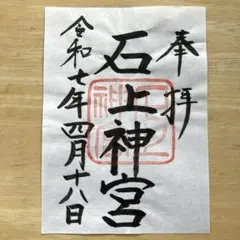 奉拝
石上神宮
令和七年四月十八日